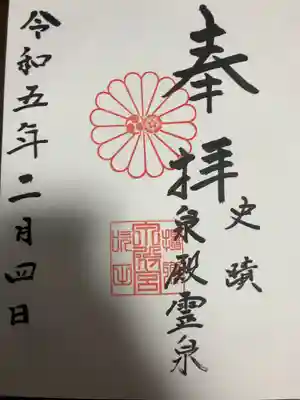 奉拝
史蹟
泉殿霊泉
令和五年二月四日